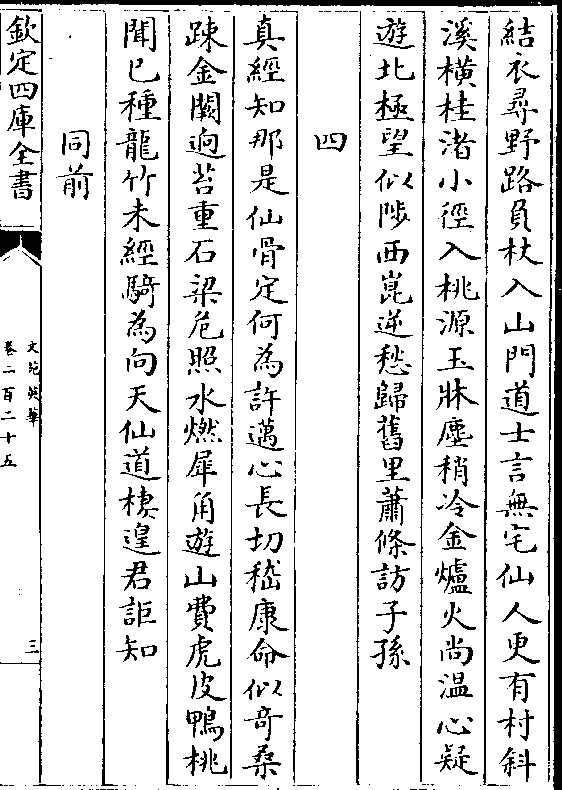 結衣尋野路負杖入山門道士言無宅仙人更有村斜
溪橫桂渚小徑入桃源玉牀塵稍冷金爐火尚温心疑
遊北極望似陟西崑逆愁歸舊里蕭條訪子孫
四
真經知那是仙骨定何為許邁心長切嵇康命似竒桑
踈金闕逈苔重石梁危照水燃犀角遊山費虎皮鴨桃
聞已種龍竹未經騎為向天仙道棲遑君詎知
同前
欽定四庫全書
文苑英華
卷二百二十五
三